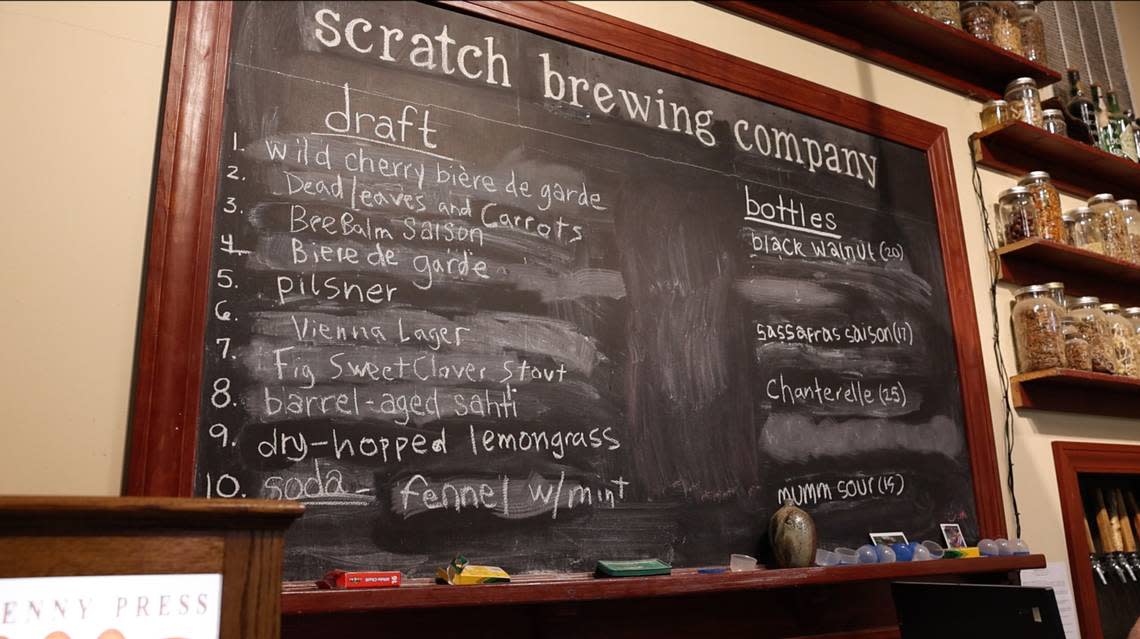 scratch brewing company
draft
1. wild cherry bière de garde
2. Dead leaves and Carrots
3. BeeBalm Saison
4. Biere de garde
5. pilsner
6. Vienna Lager
7. Fig SweetClover Stout
8. barrel-aged sahti
9. dry-hopped lemongrass
10. soda - fennel w/mint
bottles
black walnut (20)
sassafras saison (17)
Chanterelle (25)
mumm sour (15)
ENNY PRESS